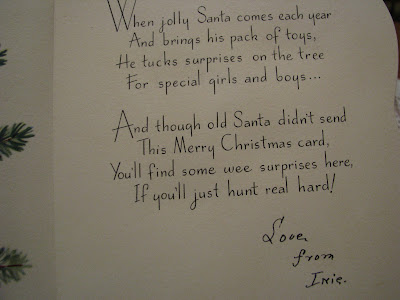 When jolly Santa comes each year
And brings his pack of toys,
He tucks surprises on the tree
For special girls and boys...
And though old Santa didn't send
This Merry Christmas card,
You'll find some wee surprises here,
If you'll just hunt real hard!
Love
from